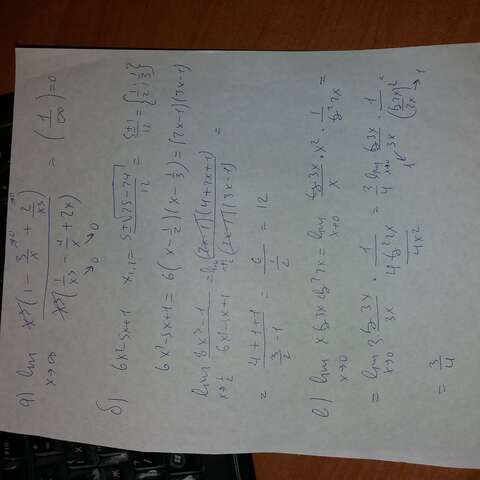 а) lim x³(1 - 3/x + 2/x³) / x³(1/x³ - 4/x + 2x) = (1/∞) = 0
x→∞ →0 →0 →0 →0
б) 6x² - 5x + 1 x₁,₂ = 5 ± √25-24 / 12 = 5±1 / 12 = {1/2; 1/3}
6x² - 5x + 1 = 6(x - 1/2)(x - 1/3) = (2x-1)(3x-1)
lim 8x³-1 / 6x²-5x+1 = lim (2x-1)(4+2x+1) / (2x-1)(3x-1) =
x→1/2
= 4+1+1 / 3/2 - 1 = 6 / 1/2 = 12
в) lim x tg3x ctg²2x = lim tg3x / x · x² · 1 / tg²2x =
x→0 x→0
= lim 3 tg3x / 3x · 1 / 4 tg²2x / 4x² = 3/4 lim tg3x / 3x · 1 / (tg2x / 2x)² =
x→0 x→0 1 →1
= 3/4